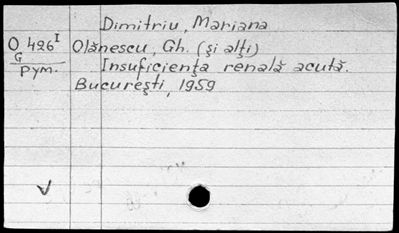 Dimitriu, Mariana
O 426 I Olănescu, Gh. (şi alţi)
G
Рум. Insuficienţa renală acută.
Bucureşti, 1959